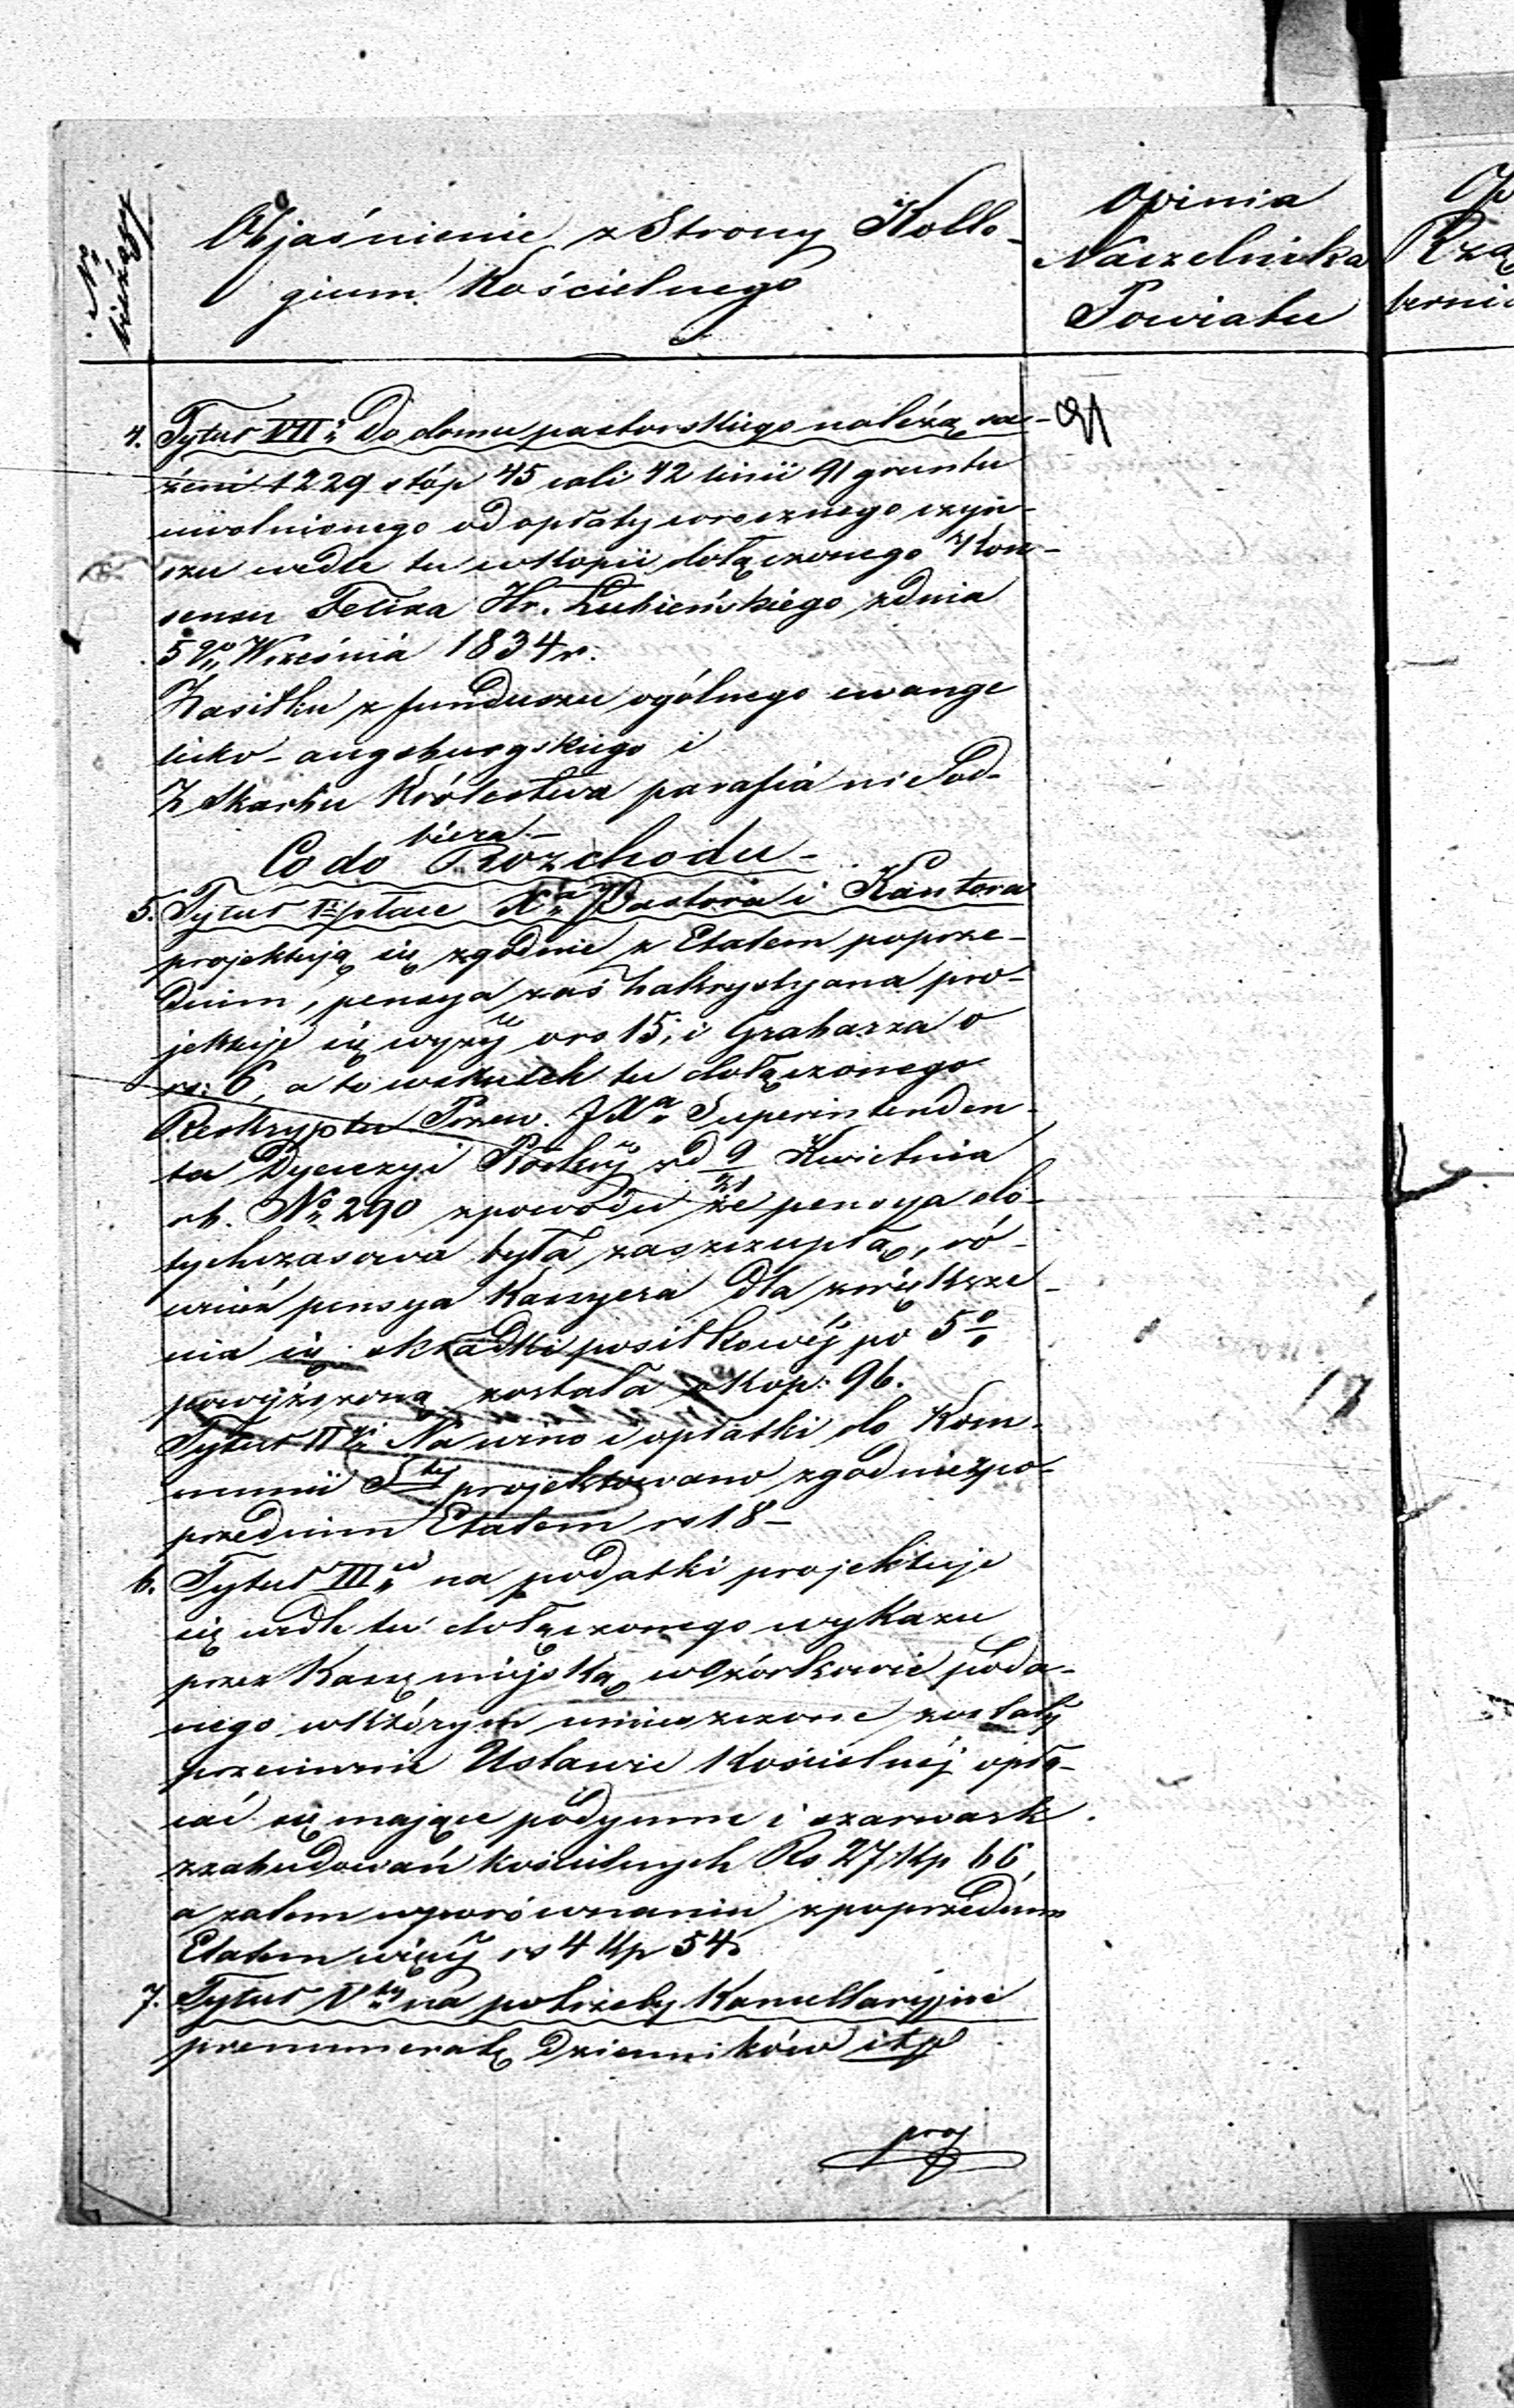 No bieżący
Objaśnienie z Strony Kolle-
gium Kościelnego
Opinia
Naczelnika
Powiatu
Rzą
berni
4. Tytuł VII Do domu pastorskiego należą są-
żeni 1229 stóp 45 cali 42 linii 91 gruntu
uwolnionego od opłaty wrocznego czyn-
szu wedle tu w kopii dołączonego Kon-
sensu Felixa Hr. Łubieńskiego z dnia
5go Września 1834 r.
Zasiłku z funduszu ogólnego ewange
licko-augsburgskiego i
Z Skarbu Królestwa parafia nie od-
biera.-
Co do Rozchodu-
5. Tytuł I płace Xa Pastora i Kantora
projektują się zgodnie z Etatem poprze-
dnim, pensya zaś Zakrystyana pro-
jektuje się wyżej o rs 15, i Grabarza o
rs: 6, a to wskutek tu dołączonego
Reskryptu Przew. JXa Superintenden-
ta Dyecezyi z d 9/21 Kwietnia
rb. No 290 z powodu że pensya do-
tychczasowa była zaszczupłą, ró-
wnież pensya Kassyera dla zwiększe-
nia się składki posiłkowéj po 5%
powyższoną została o kop: 96.
Tytuł II Na wino i opłatki do Kom-
munii Stej projektowano zgodnie z po-
przednim Etatem rs 18-
6. Tytuł III na podatki projektuje
się wedle tu dołączonego wykazu
przez Kassę miejską w Ozorkowie poda-
nego, w którym umieszczone zostały
przeciwnie Ustawie Kościelnéj opła-
cać się mające podymne i szarwark
z zabudowań kościelnych Rs 27 Kp 66,
a zatem w porównaniu z poprzednim
Etatem więcej rs 4 Kp 54.
7. Tytuł V na potrzeby Kancellaryjne
prenumeratę Dzienników itp
proj